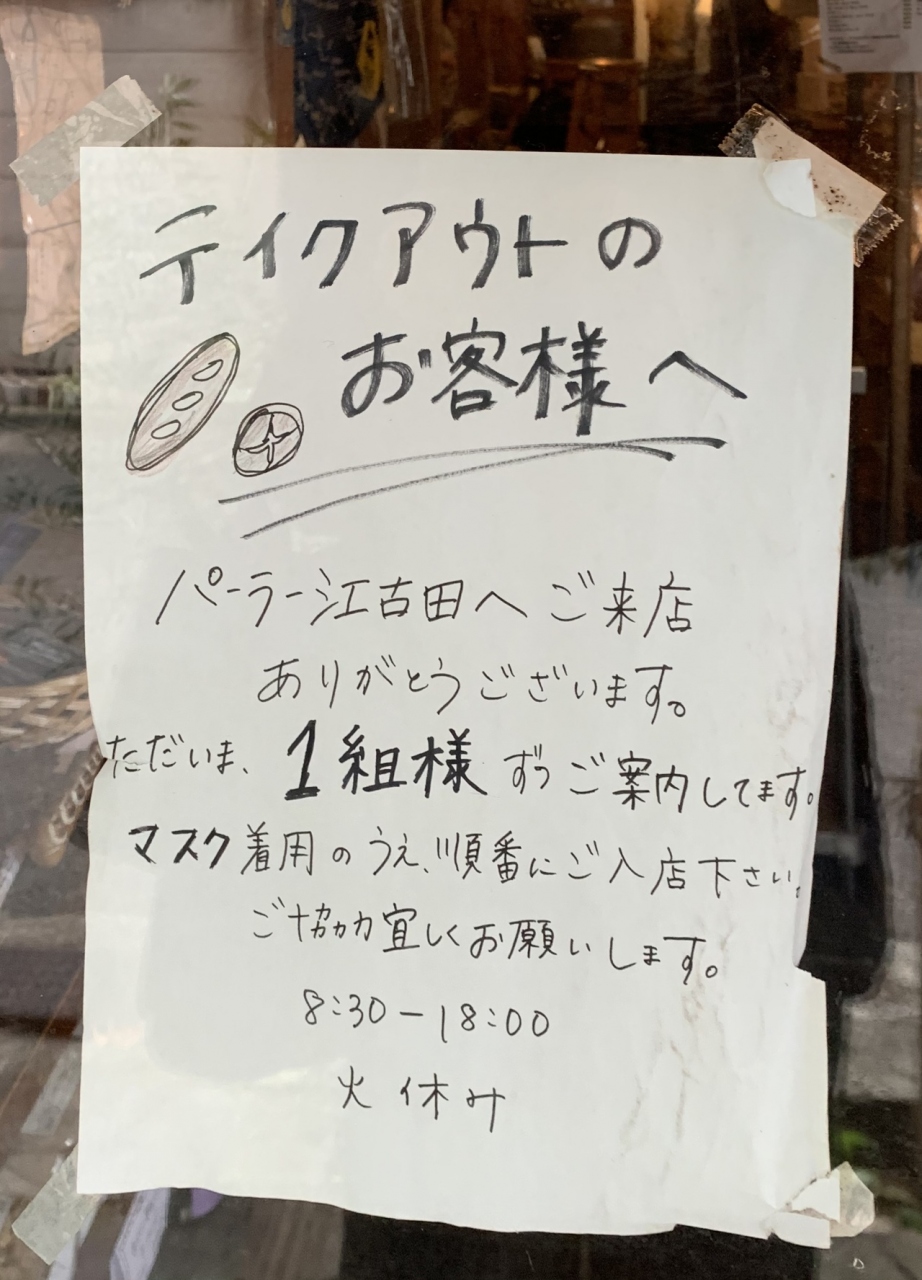 テイクアウトの
お客様へ
パーラー江古田へご来店
ありがとうございます。
ただいま、1組様ずつご案内してます。
マスク着用のうえ、順番にご入店下さい。
ご協力宜しくお願いします。
8:30ー18:00
火休み